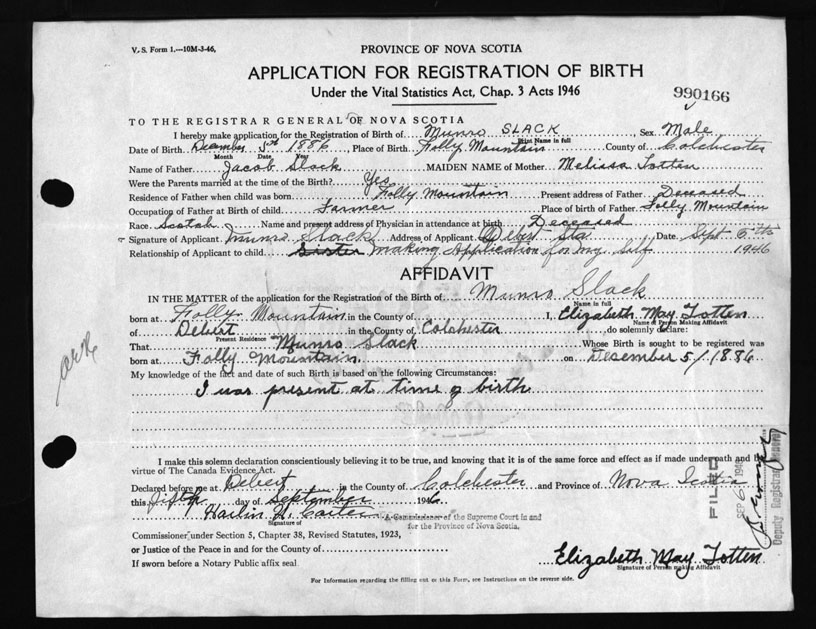 V. S. Form 1.—10M-3-46,
PROVINCE OF NOVA SCOTIA
APPLICATION FOR REGISTRATION OF BIRTH
Under the Vital Statistics Act, Chap. 3 Acts 1946
990166
TO THE REGISTRAR GENERAL OF NOVA SCOTIA
I hereby make application for the Registration of Birth of Munro SLACK, Sex Male
Print Name in full
Date of Birth December 5th 1886, Place of Birth Folly Mountain County of Colchester
Month Date Year
Name of Father Jacob Slack MAIDEN NAME of Mother Melissa Totten
Were the Parents married at the time of the Birth? Yes
Residence of Father when child was born Folly Mountain Present address of Father Deceased
Occupation of Father at Birth of child Farmer Place of birth of Father Folly Mountain
Race Scotch Name and present address of Physician in attendance at birth Deceased
Signature of Applicant Munro Slack Address of Applicant Debert Sta Date Sept 5th
Relationship of Applicant to child Sister Making Application for my self 1946
AFFIDAVIT
IN THE MATTER of the application for the Registration of the Birth of Munro Slack
Name in full
born at Folly Mountain in the County of I, Elizabeth May Totten
Name of Person Making Affidavit
of Debert in the County of Colchester do solemnly declare:
Present Residence
That Munro Slack Whose Birth is sought to be registered was
born at Folly Mountain on Desember 5/1886
My knowledge of the fact and date of such Birth is based on the following Circumstances:
I was present at time of birth
I make this solemn declaration conscientiously believing it to be true, and knowing that it is of the same force and effect as if made under oath and by
virtue of The Canada Evidence Act.
Declared before me at Debert in the County of Colchester and Province of Nova Scotia
this fifth day of September 1946
Harlin H. Carter A Commissioner of the Supreme Court in and
Signature of for the Province of Nova Scotia.
Commissioner under Section 5, Chapter 38, Revised Statutes, 1923,
or Justice of the Peace in and for the County of
If sworn before a Notary Public affix seal
Elizabeth May Totten
Signature of Person making Affidavit
For Information regarding the filling out of this Form, see Instructions on the reverse side.
FILED
SEP 6 1946
Deputy Registrar General